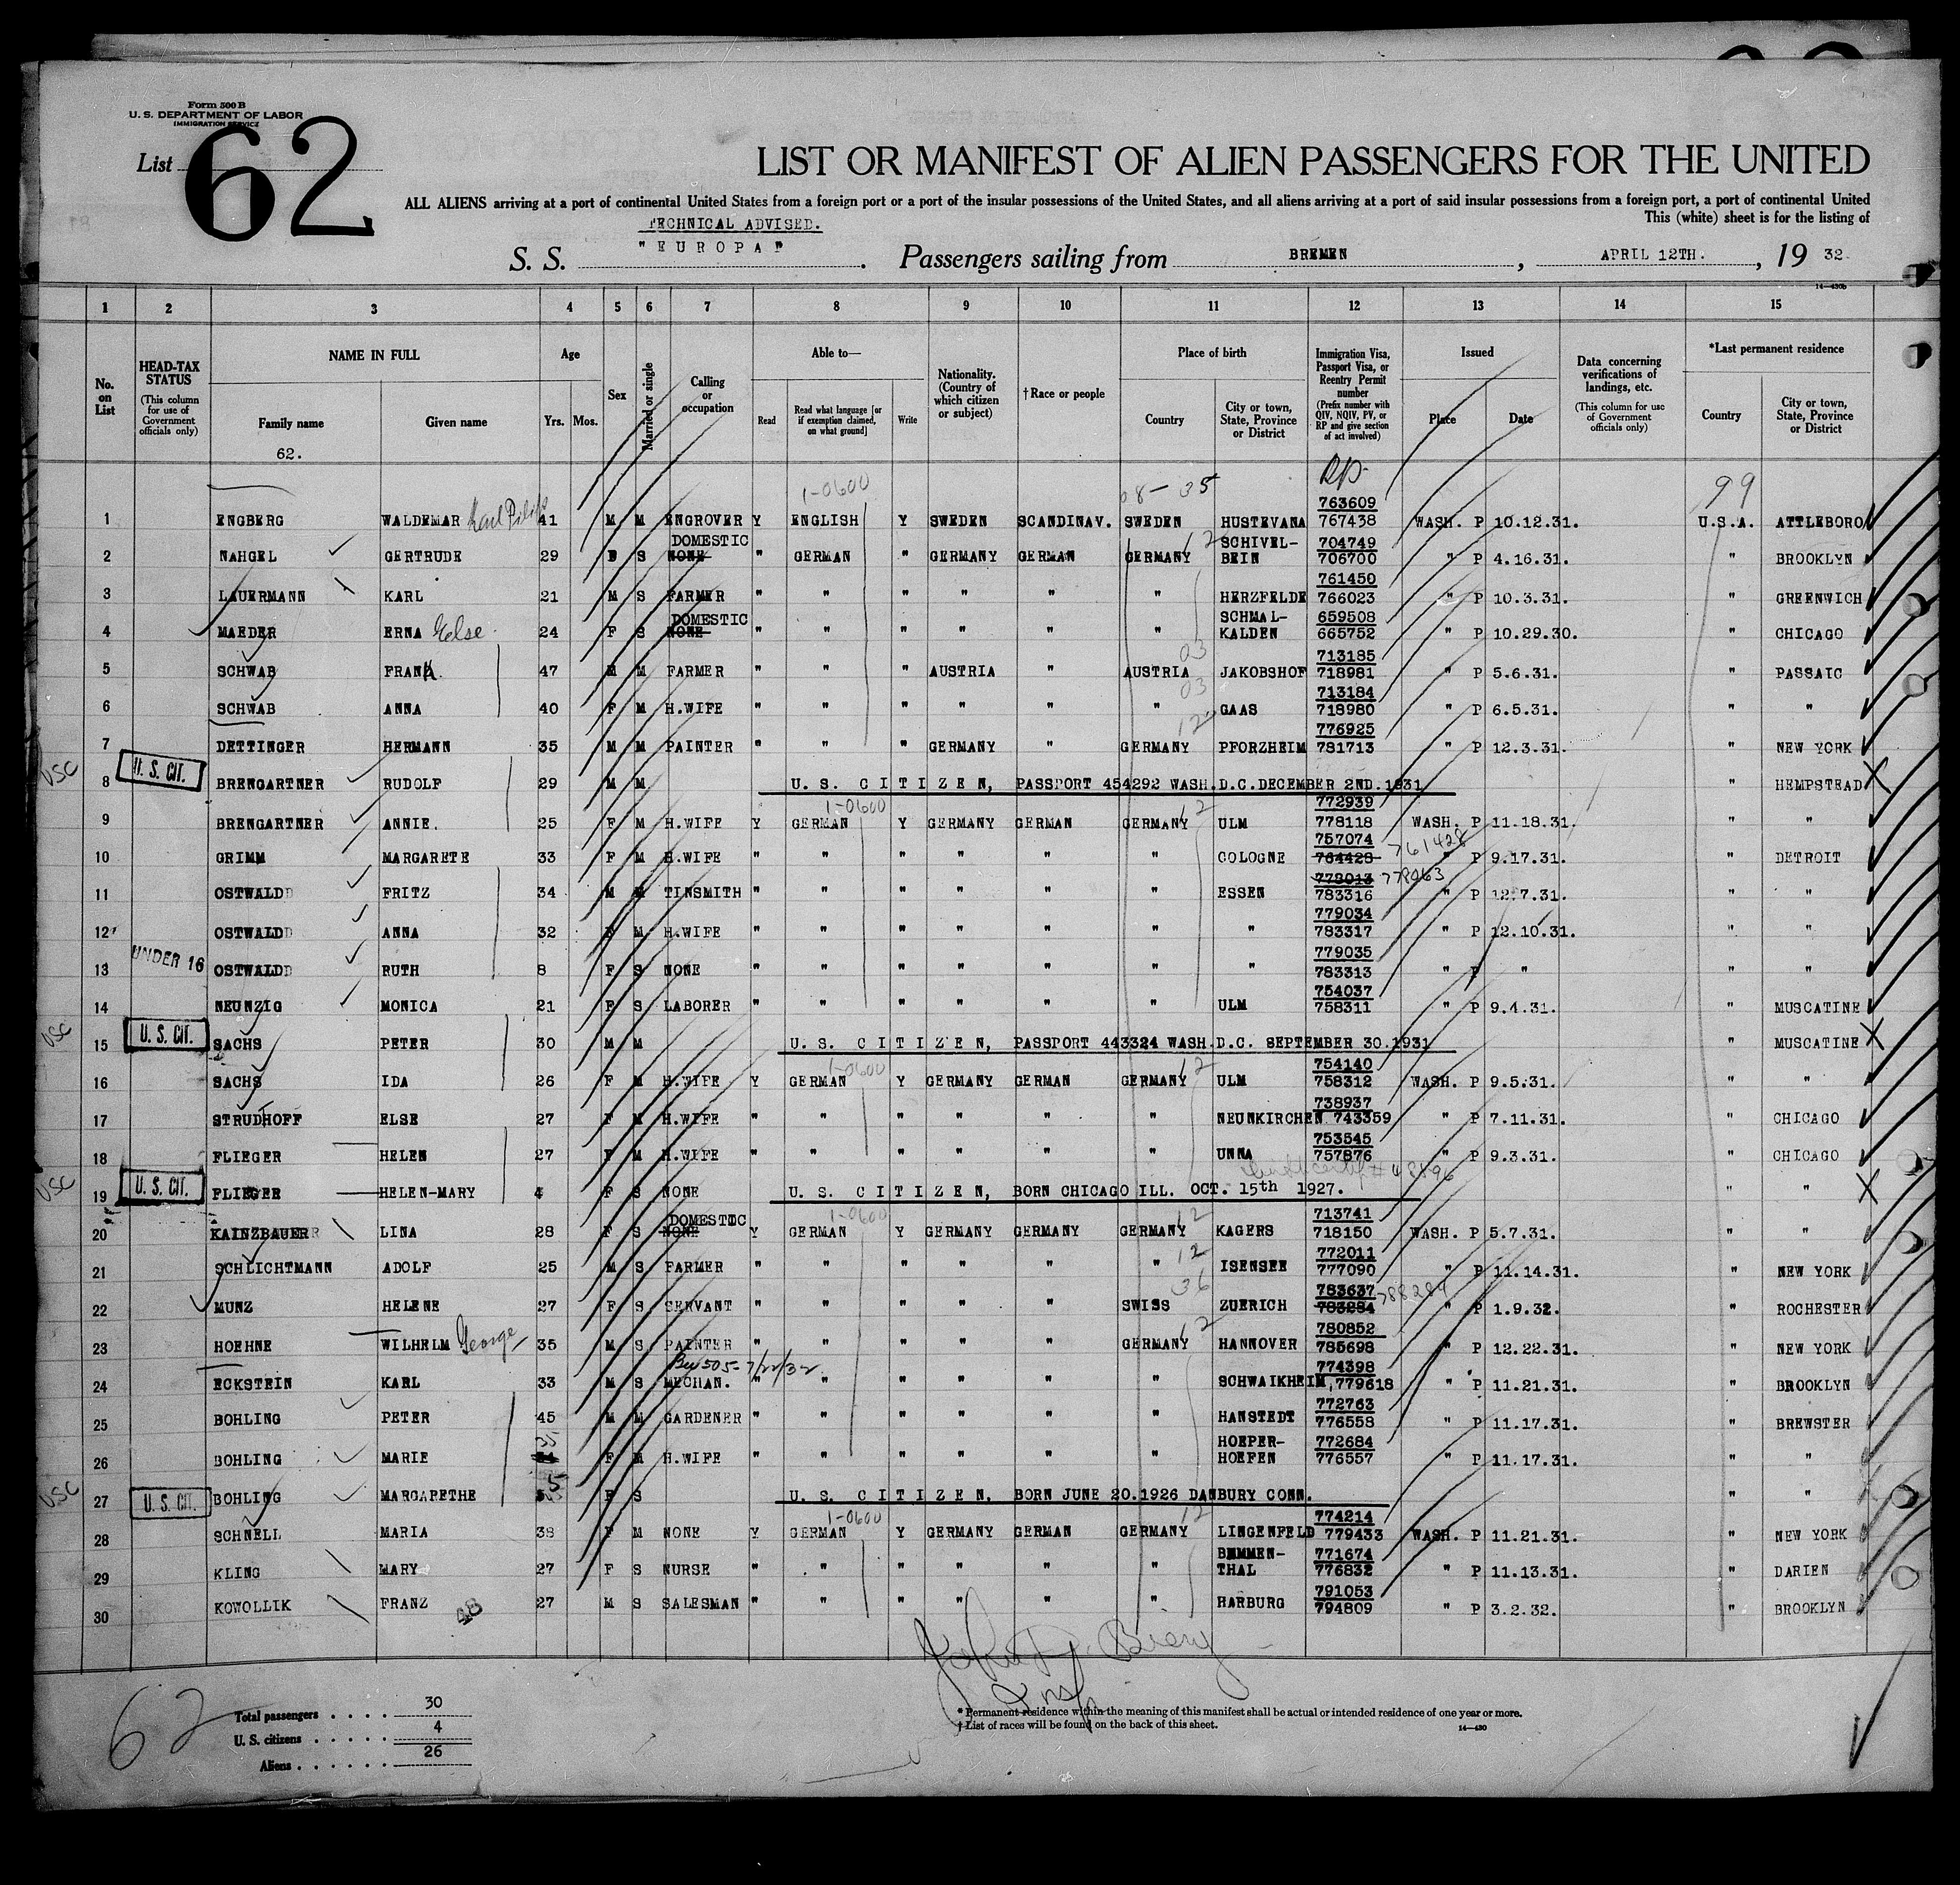 Form 500 B
U. S. DEPARTMENT OF LABOR
IMMIGRATION SERVICE
List 62
LIST OR MANIFEST OF ALIEN PASSENGERS FOR THE UNITED
ALL ALIENS arriving at a port of continental United States from a foreign port or a port of the insular possessions of the United States, and all aliens arriving at a port of said insular possessions from a foreign port, a port of continental United
This (white) sheet is for the listing of
TECHNICAL ADVISED.
S. S. "EUROPA" . Passengers sailing from BREMEN , APRIL 12TH. , 19 32.
14-430b
1 2 3 4 5 6 7 8 9 10 11 12 13 14 15
No. on List
HEAD-TAX STATUS (This column for use of Government officials only)
NAME IN FULL Family name Given name
62.
Age Yrs. Mos.
Sex
Married or single
Calling or occupation
Able to— Read Read what language [or if exemption claimed, on what ground] Write
Nationality. (Country of which citizen or subject)
†Race or people
Place of birth Country City or town, State, Province or District
Immigration Visa, Passport Visa, or Reentry Permit number (Prefix number with QIV, NQIV, PV, or RP and give section of act involved)
Issued Place Date
Data concerning verifications of landings, etc. (This column for use of Government officials only)
*Last permanent residence Country City or town, State, Province or District
1-0600 08-35 RP 99
763609
1 ENGBERG WALDEMAR 41 M M ENGROVER Y ENGLISH Y SWEDEN SCANDINAV. SWEDEN HUSTEVANA 767438 WASH. P 10.12.31. U.S.A. ATTLEBORO
DOMESTIC 12 SCHIVEL- 704749
2 NAHGEL GERTRUDE 29 F S NONE " GERMAN " GERMANY GERMAN GERMANY BEIN 706700 " P 4.16.31. " BROOKLYN
761450
3 LAUERMANN KARL 21 M S FARMER " " " " " " HERZFELDE 766023 " P 10.3.31. " GREENWICH
DOMESTIC SCHMAL- 659508
4 MAEDER ERNA Else 24 F S NONE " " " " " " KALDEN 665752 " P 10.29.30. " CHICAGO
03 713185
5 SCHWAB FRANK. 47 M M FARMER " " " AUSTRIA " AUSTRIA JAKOBSHOF 718981 " P 5.6.31. " PASSAIC
03 713184
6 SCHWAB ANNA 40 F M H.WIFE " " " " " " GAAS 718980 " P 6.5.31. " "
12 776925
7 DETTINGER HERMANN 35 M M PAINTER " " " GERMANY " GERMANY PFORZHEIM 781713 " P 12.3.31. " NEW YORK
USC U. S. CIT.
8 BRENGARTNER RUDOLF 29 M M U.S. CITIZEN, PASSPORT 454292 WASH.D.C.DECEMBER 2ND.1931 " HEMPSTEAD X
1-0600 12 772939
9 BRENGARTNER ANNIE. 25 F M H.WIFE Y GERMAN Y GERMANY GERMAN GERMANY ULM 778118 WASH. P 11.18.31. " "
757074 761428
10 GRIMM MARGARETE 33 F M H.WIFE " " " " " " COLOGNE 764428 " P 9.17.31. " DETROIT
778013 778063
11 OSTWALD FRITZ 34 M M TINSMITH " " " " " " ESSEN 783316 " P 12.7.31. " "
779034
12 OSTWALD ANNA 32 F M H.WIFE " " " " " " " 783317 " P 12.10.31. " "
UNDER 16 779035
13 OSTWALD RUTH 8 F S NONE " " " " " " " 783313 " P " " "
754037
14 NEUNZIG MONICA 21 F S LABORER " " " " " " ULM 758311 " P 9.4.31. " MUSCATINE
USC U. S. CIT.
15 SACHS PETER 30 M M U.S. CITIZEN, PASSPORT 443324 WASH.D.C. SEPTEMBER 30.1931 " MUSCATINE X
1-0600 12 754140
16 SACHS IDA 26 F M H.WIFE Y GERMAN Y GERMANY GERMAN GERMANY ULM 758312 WASH. P 9.5.31. " "
738937
17 STRUDHOFF ELSE 27 F M H.WIFE " " " " " " NEUNKIRCHEN 743359 " P 7.11.31. " CHICAGO
753545
18 FLIEGER HELEN 27 F M H.WIFE " " " " " " UNNA 757876 " P 9.3.31. " CHICAGO
USC U. S. CIT.
19 FLIEGER HELEN-MARY 4 F S NONE U.S. CITIZEN, BORN CHICAGO ILL. OCT. 15th 1927. " " X
DOMESTIC 1-0600 12 713741
20 KAINZBAUER LINA 28 F S NONE Y GERMAN Y GERMANY GERMANY GERMANY KAGERS 718150 WASH. P 5.7.31. " "
12 772011
21 SCHLICHTMANN ADOLF 25 M S FARMER " " " " " " ISENSEE 777090 " P 11.14.31. " NEW YORK
36 783637 788284
22 MUNZ HELENE 27 F S SERVANT " " " " " SWISS ZUERICH 783284 " P 1.9.32. " ROCHESTER
12 780852
23 HOEHNE WILHELM George 35 M S PAINTER " " " " " GERMANY HANNOVER 785698 " P 12.22.31. " NEW YORK
505- 7/22/32 774398
24 ECKSTEIN KARL 33 M S MECHAN. " " " " " " SCHWAIKHEIM, 779618 " P 11.21.31. " BROOKLYN
772763
25 BOHLING PETER 45 M M GARDENER " " " " " " HANSTEDT 776558 " P 11.17.31. " BREWSTER
HOEPER- 772684
26 BOHLING MARIE F M H.WIFE " " " " " " HOEFEN 776557 " P 11.17.31. " "
USC U. S. CIT.
27 BOHLING MARGARETHE 5 F S U.S. CITIZEN, BORN JUNE 20.1926 DANBURY CONN. " "
1-0600 12 774214
28 SCHNELL MARIA 38 F M NONE Y GERMAN Y GERMANY GERMAN GERMANY LINGENFELD 779433 WASH. P 11.21.31. " NEW YORK
BEMMEN- 771674
29 KLING MARY 27 F S NURSE " " " " " " THAL 776832 " P 11.13.31. " DARIEN
791053
30 KOWOLLIK FRANZ 27 M S SALESMAN " " " " " " HARBURG 794809 " P 3.2.32. " BROOKLYN
48
Insp
62
Total passengers . . . . 30
U. S. citizens . . . . . 4
Aliens . . . . . . 26
* Permanent residence within the meaning of this manifest shall be actual or intended residence of one year or more.
† List of races will be found on the back of this sheet.
14-430